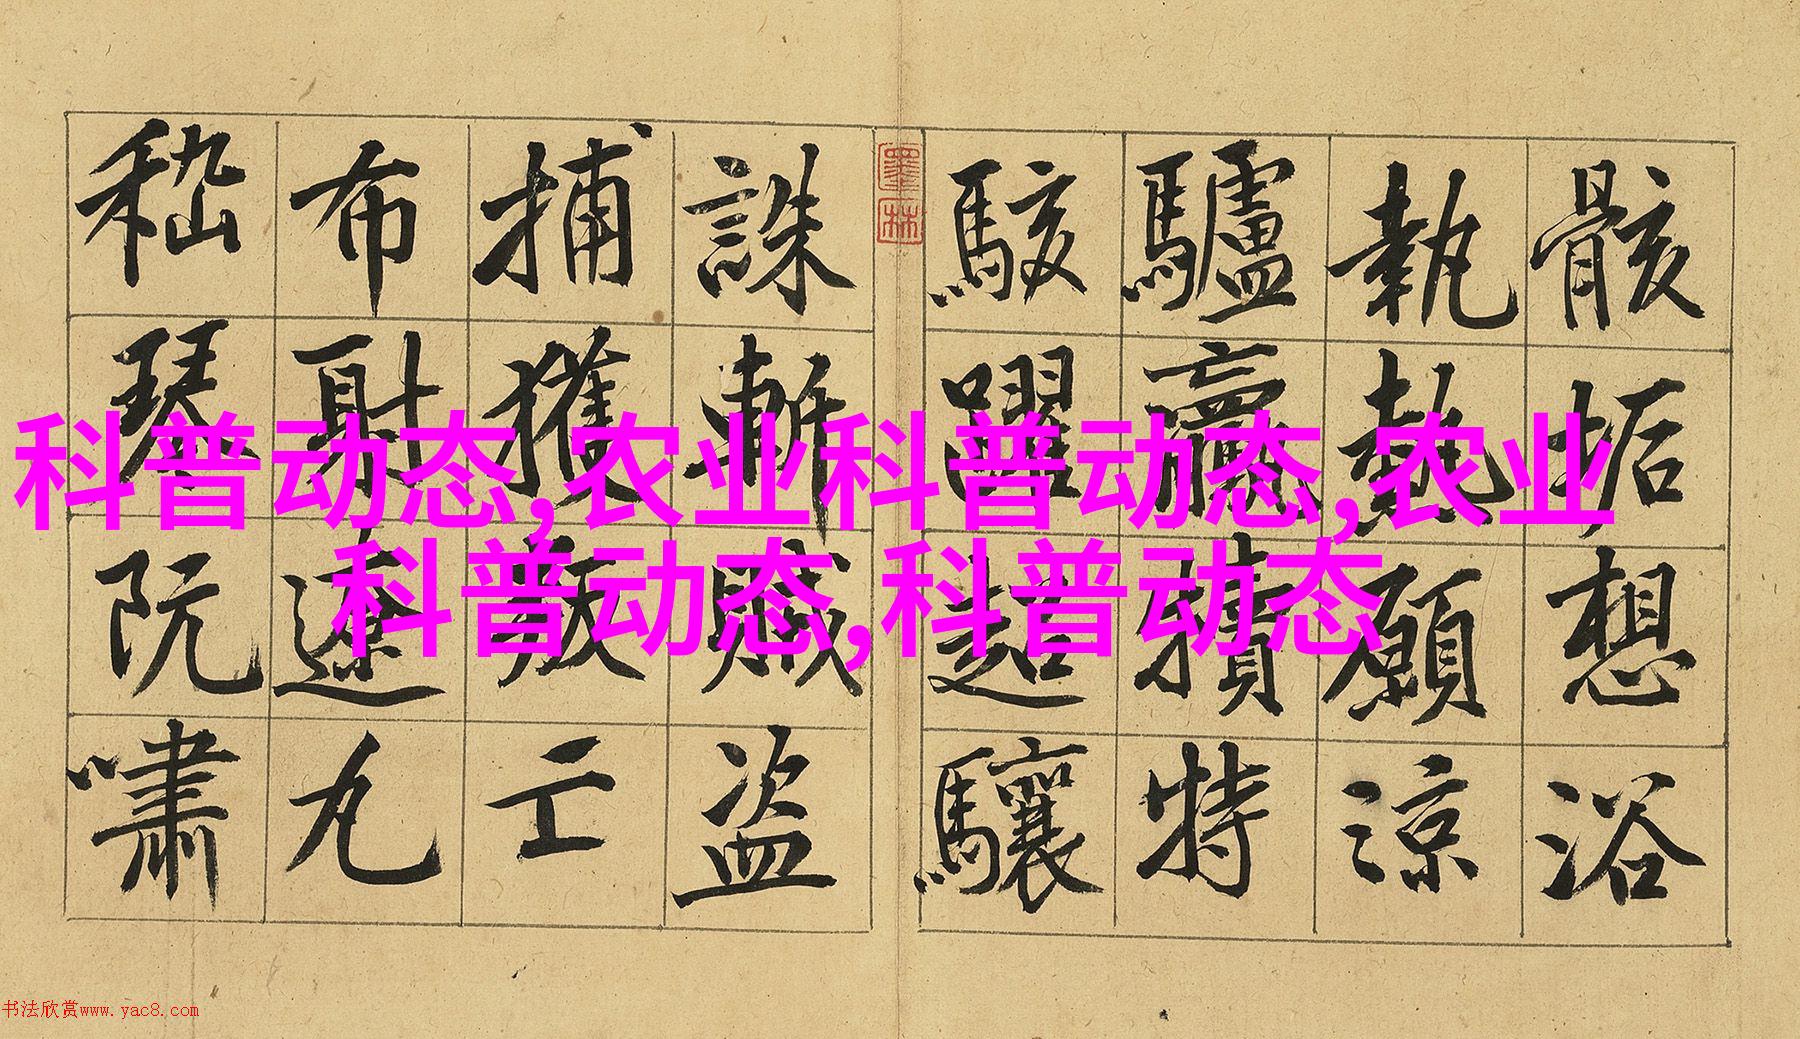 科普动态,农业科普动态,农业
科普动态,科普动态
骸垢想浴
執熱願涼
驢犢特
駭躍超驤
墨林
誅斬賊盜
捕獲叛亡
布射遼丸
嵇琴阮嘯
书法欣赏www.yac8.com